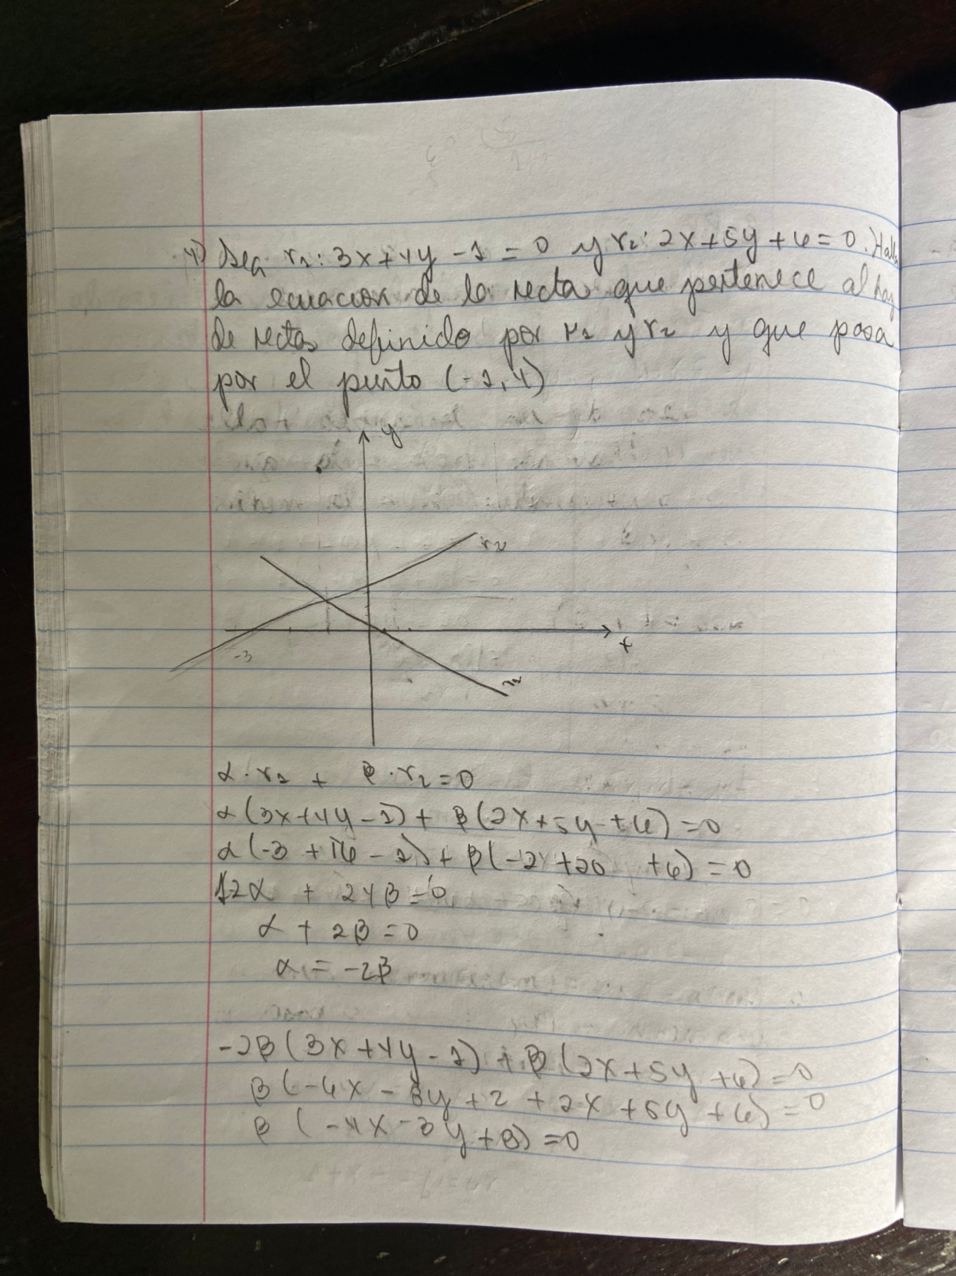 4) Sea r₁: 3x+4y-1=0 y r₂: 2x+5y+6=0. Halla
la ecuacion de la recta que pertenece al haz
de rectas definido por r₁ y r₂ y que pasa
por el punto (-1,4)
y
r₂
x
-3
r₁
α·r₁ + β·r₂=0
α(3x+4y-1)+ β(2x+5y+6)=0
α(-3+16-1)+β(-2+20+6)=0
12α + 24β=0
α + 2β=0
α = -2β
-2β(3x+4y-1)+β(2x+5y+6)=0
β(-6x-8y+2+2x+5y+6)=0
β(-4x-3y+8)=0